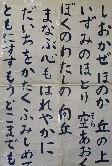 しおかぜほのか 丘
いずみのほとり 空あお
ぼくのわたしの 向丘
まなぶ心も はれやかに
だいちをかたく ふみしめて
ともにすすもう どこまでも